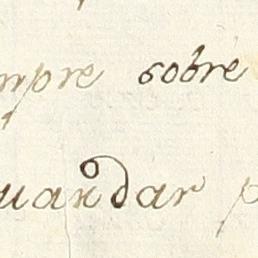 mpre sobre
uardar p